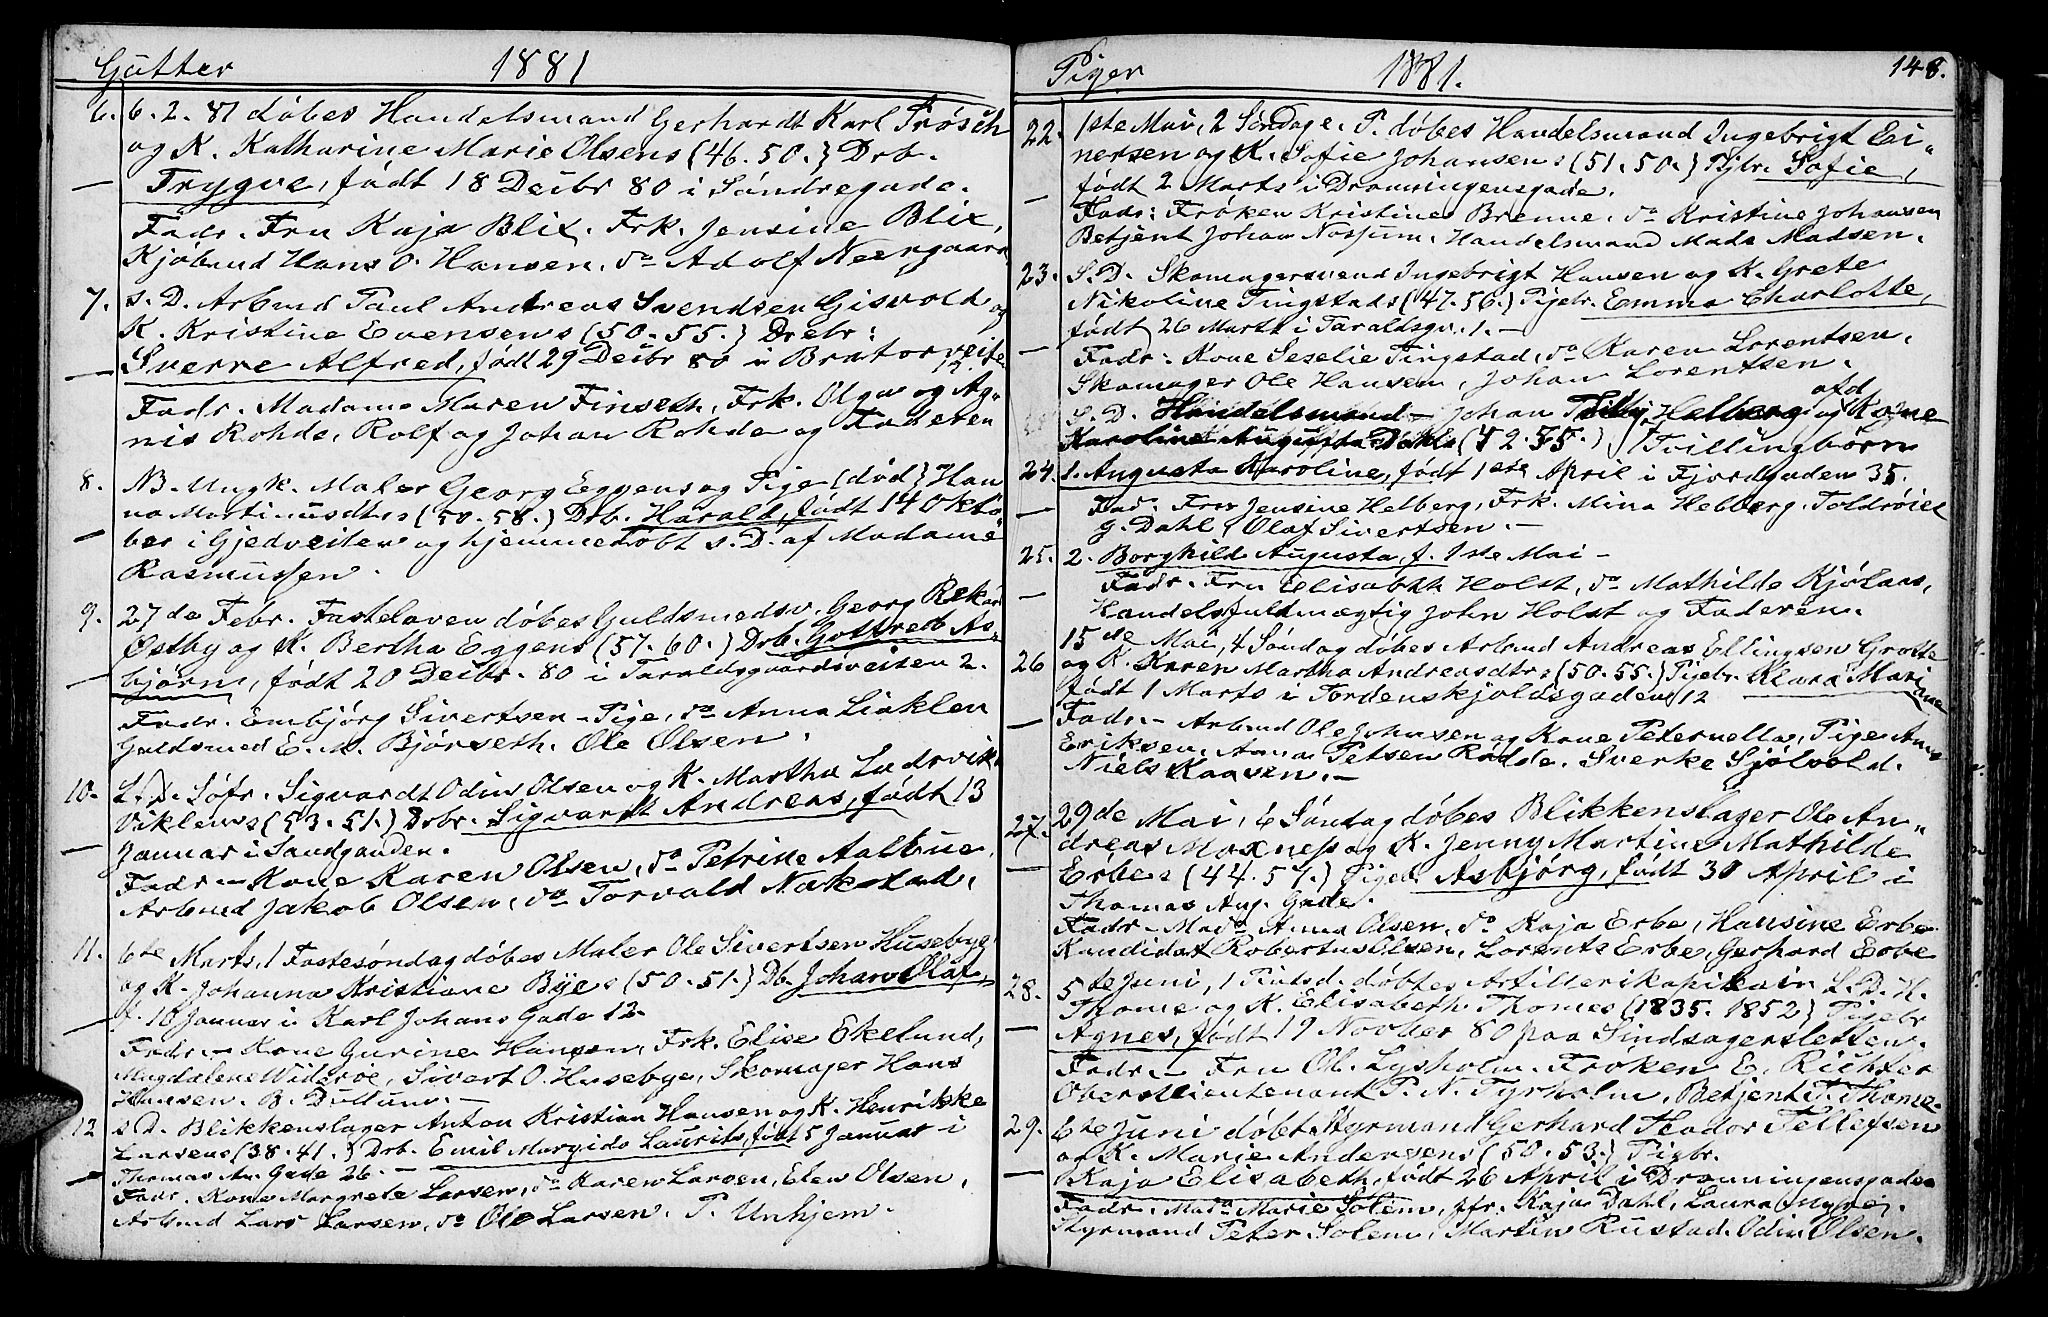 Gutter 1881
6. 6. 2. 81 døbes Handelsmand Gerhardt Karl Frøsch
og K. Katharine Marie Olsens (46. 50.) Drb.
Trygve, født 18 Decbr 80 i Søndregade.
Fadr. Fru Kaja Blix. Frk. Jensine Blix,
Kjøbmd Hans O. Hansen, do Adolf Neergaard
7. s. D. Arbmd Paul Andreas Svendsen Gisvold og
K. Kristine Evensens (50. 55.) Drebr:
Sverre Alfred, født 29 Decbr 80 i Bratørveiten
12.
Fadr. Madame Maren Finseth, Frk. Olga og Ag-
nis Rohde, Rolf og Johan Rohde og Faderen
8. NB. Ungk. Maler Georg Eggens og Pige (død) Han
na Martinusdtrs (50. 58.) Drb. Harald, født 14 Okto
ber i Gjedveiten og hjemmedøbt s. D. af Madame
Rasmussen.
9. 27de Febr. Fastelaven døbes Guldsmedsv. Georg Rekar
Østby og K. Bertha Eggens (57. 60.) Drb. Gotfred As-
bjørn, født 20 Decbr. 80 i Taraldsgaardsveiten 2.
Fadr. Embjørg Sivertsen - Pige, do Anna Liaklen
Guldsmed E. M. Bjørseth. Ole Olsen.
10. S. D. Søfr. Sigvardt Odin Olsen og K. Martha Ludvik.
Viklens (53. 51.) Drbr. Sigvardt Andreas, født 13
Januar i Sandgaden.
Fadr - Kone Karen Olsen, do Petrine Aalbue
Arbmd Jakob Olsen, do Torvald Nakstad,
11. 6te Marts, 1 Fastesøndag døbes Maler Ole Sivertsen Husebye
og K. Johanna Kristiane Byes (50. 51.) Db. Johan Olaf,
f. 16 Januar i Karl Johans Gade 12.
Fadr - Kone Gurine Hansen, Frk. Elise Ekelund,
Magdalene Widerøe, Sivert O. Husebye, Skomager Hans
Hansen. B. Dullum.
12 s. D. Blikkenslager Anton Kristian Hansen og K. Henrikke
Larsens (38. 41.) Drb. Emil Margido Laurits, født 5 Januar i
Thomas An. Gade 26.
Fadr. Kone Margrete Larsen, do Karen Larsen, Elen Olsen,
Arbmd Lars Larsen, do Ole Larsen. P. Unhjem.
Piger 1881. 148.
22. 1ste Mai, 2 Søndag e. P. døbes Handelsmand Ingebrigt Ei-
nersen og K. Sofie Johansens (51. 50.) Pjbr. Sofie,
født 2 Marts i Dronningensgade.
Fadr: Frøken Kristine Brenne, do Kristine Johansen
Betjent Johan Nossum. Handelsmand Mads Madsen.
23. S. D. Skomagersvend Ingebrigt Hansen og K. Grete
Nikoline Tingstads (47. 56.) Pigebr. Emma Charlotte,
født 26 Marts i Taraldsgv. 1.
Fadr: Kone Seselie Tingstad, do Karen Lorentsen.
Skomager Ole Hansen, Johan Lorentsen.
afd
S. D. Handelsmand Johan Helberg og Kone
Karoline Augusta Dahls (42. 55.) Tvillingbørn
24. 1. Augusta Karoline, født 1ste April i Fjordgaden 35.
Fad: Fru Jensine Helberg, Frk. Mina Helberg. Toldroier
G. Dahl, Olaf Sivertsen.
25. 2. Borghild Augusta, f. 1ste Mai -
Fadr. Fru Elisabeth Holst, do Mathilde Kjølaas,
Handelsfuldmægtig John Holst og Faderen.
26 15de Mai, 4 Søndag døbes Arbmd Andreas Ellingsen Grotte
og K. Karen Martha Andreasdtrs (50. 55.) Pigebr. Klara Mari
anne
født 1 Marts i Tordenskjoldsgaden 12
Fadr. - Arbmd Ole Johnsen og Kone Peternella, Pige Anne
Eriksen, Anna Petsen Rødde. Sverke Sjølvold.
Niels Kaasen.
27. 29de Mai, 6 Søndag døbes Blikkenslager Ole An-
dreas Moxness og K. Jenny Martine Mathilde
Erbes (44. 57.) Pigebr. Asbjørg, født 30 April i
Thomas Ang. Gade.
Fadr - Mado Anna Olsen, do Kaja Erbe, Hansine Erbe
Kandidat Robertus Olsen, Lorents Erbe, Gerhard Erbe
28. 5te Juni, 1 Pintsd. døbtes Artillerikapitain L. D. H.
Thome og K. Elisabeth Thomes (1835. 1852) Pigebr
Agnes, født 19 Novber 80 paa Sindsagersletten.
Fadr - Fru Ol. Lysholm. Frøken E. Richter
Oberstlieutenant P. N. Tyrholm, Betjent T. Thome
29. 6te Juni døbt Styrmand Gerhard Teodor Tellefsen
og K. Marie Andersens (50. 53.) Pigbr.
Kaja Elisabeth, født 26 April i Dronningensgaden
Fadr. Mado Marie Solem, Jfr. Kaja Dahl, Laura Myre.
Styrmand Peter Solem, Martin Rustad. Odin Olsen.